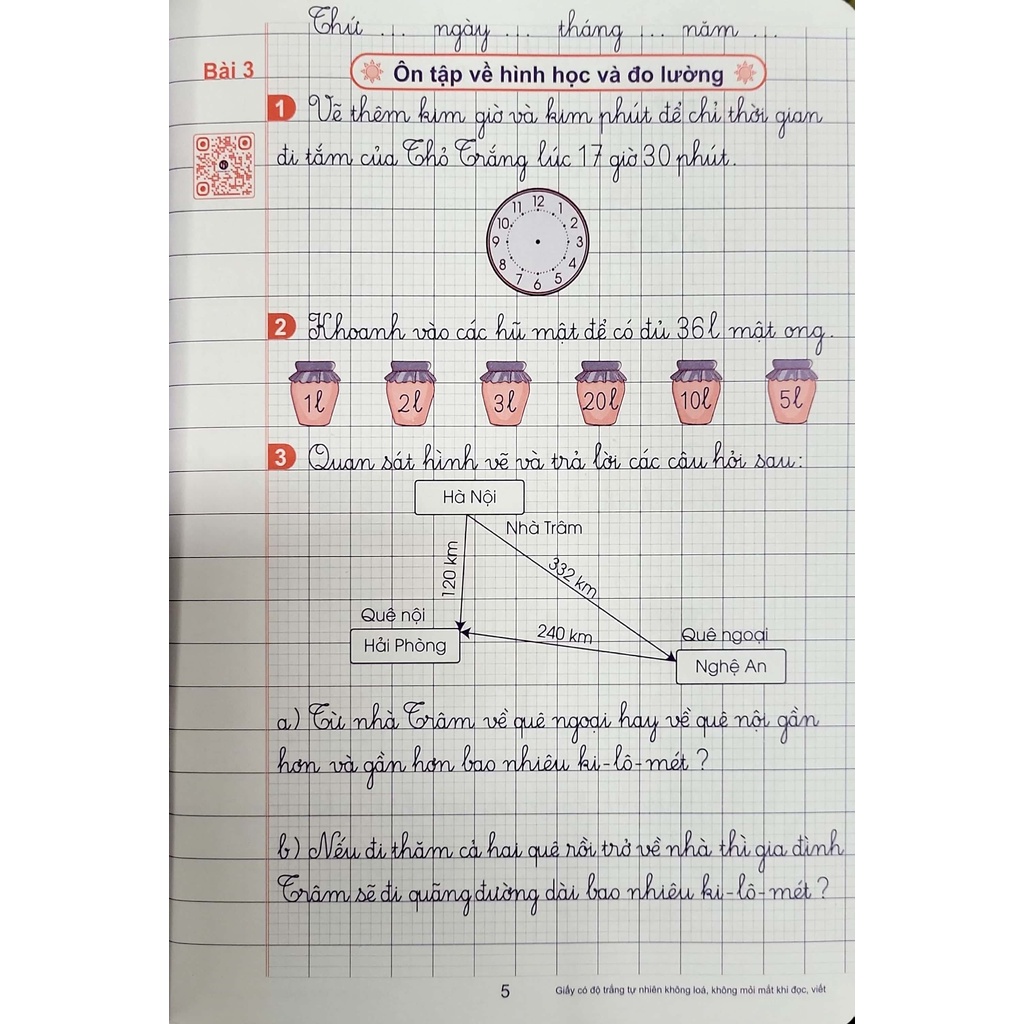 Thứ ... ngày ... tháng ... năm ...
Bài 3
Ôn tập về hình học và đo lường
1 Vẽ thêm kim giờ và kim phút để chỉ thời gian
đi tắm của Thỏ Trắng lúc 17 giờ 30 phút.
12
11 1
10 2
9 3
8 4
7 5
6
2 Khoanh vào các hũ mật để có đủ 36l mật ong.
1l 2l 3l 20l 10l 5l
3 Quan sát hình vẽ và trả lời các câu hỏi sau:
Hà Nội
Nhà Trâm
120 km
332 km
Quê nội
240 km
Quê ngoại
Hải Phòng
Nghệ An
a) Từ nhà Trâm về quê ngoại hay về quê nội gần
hơn và gần hơn bao nhiêu ki-lô-mét ?
b) Nếu đi thăm cả hai quê rồi trở về nhà thì gia đình
Trâm sẽ đi quãng đường dài bao nhiêu ki-lô-mét ?
5
Giấy có độ trắng tự nhiên không loá, không mỏi mắt khi đọc, viết